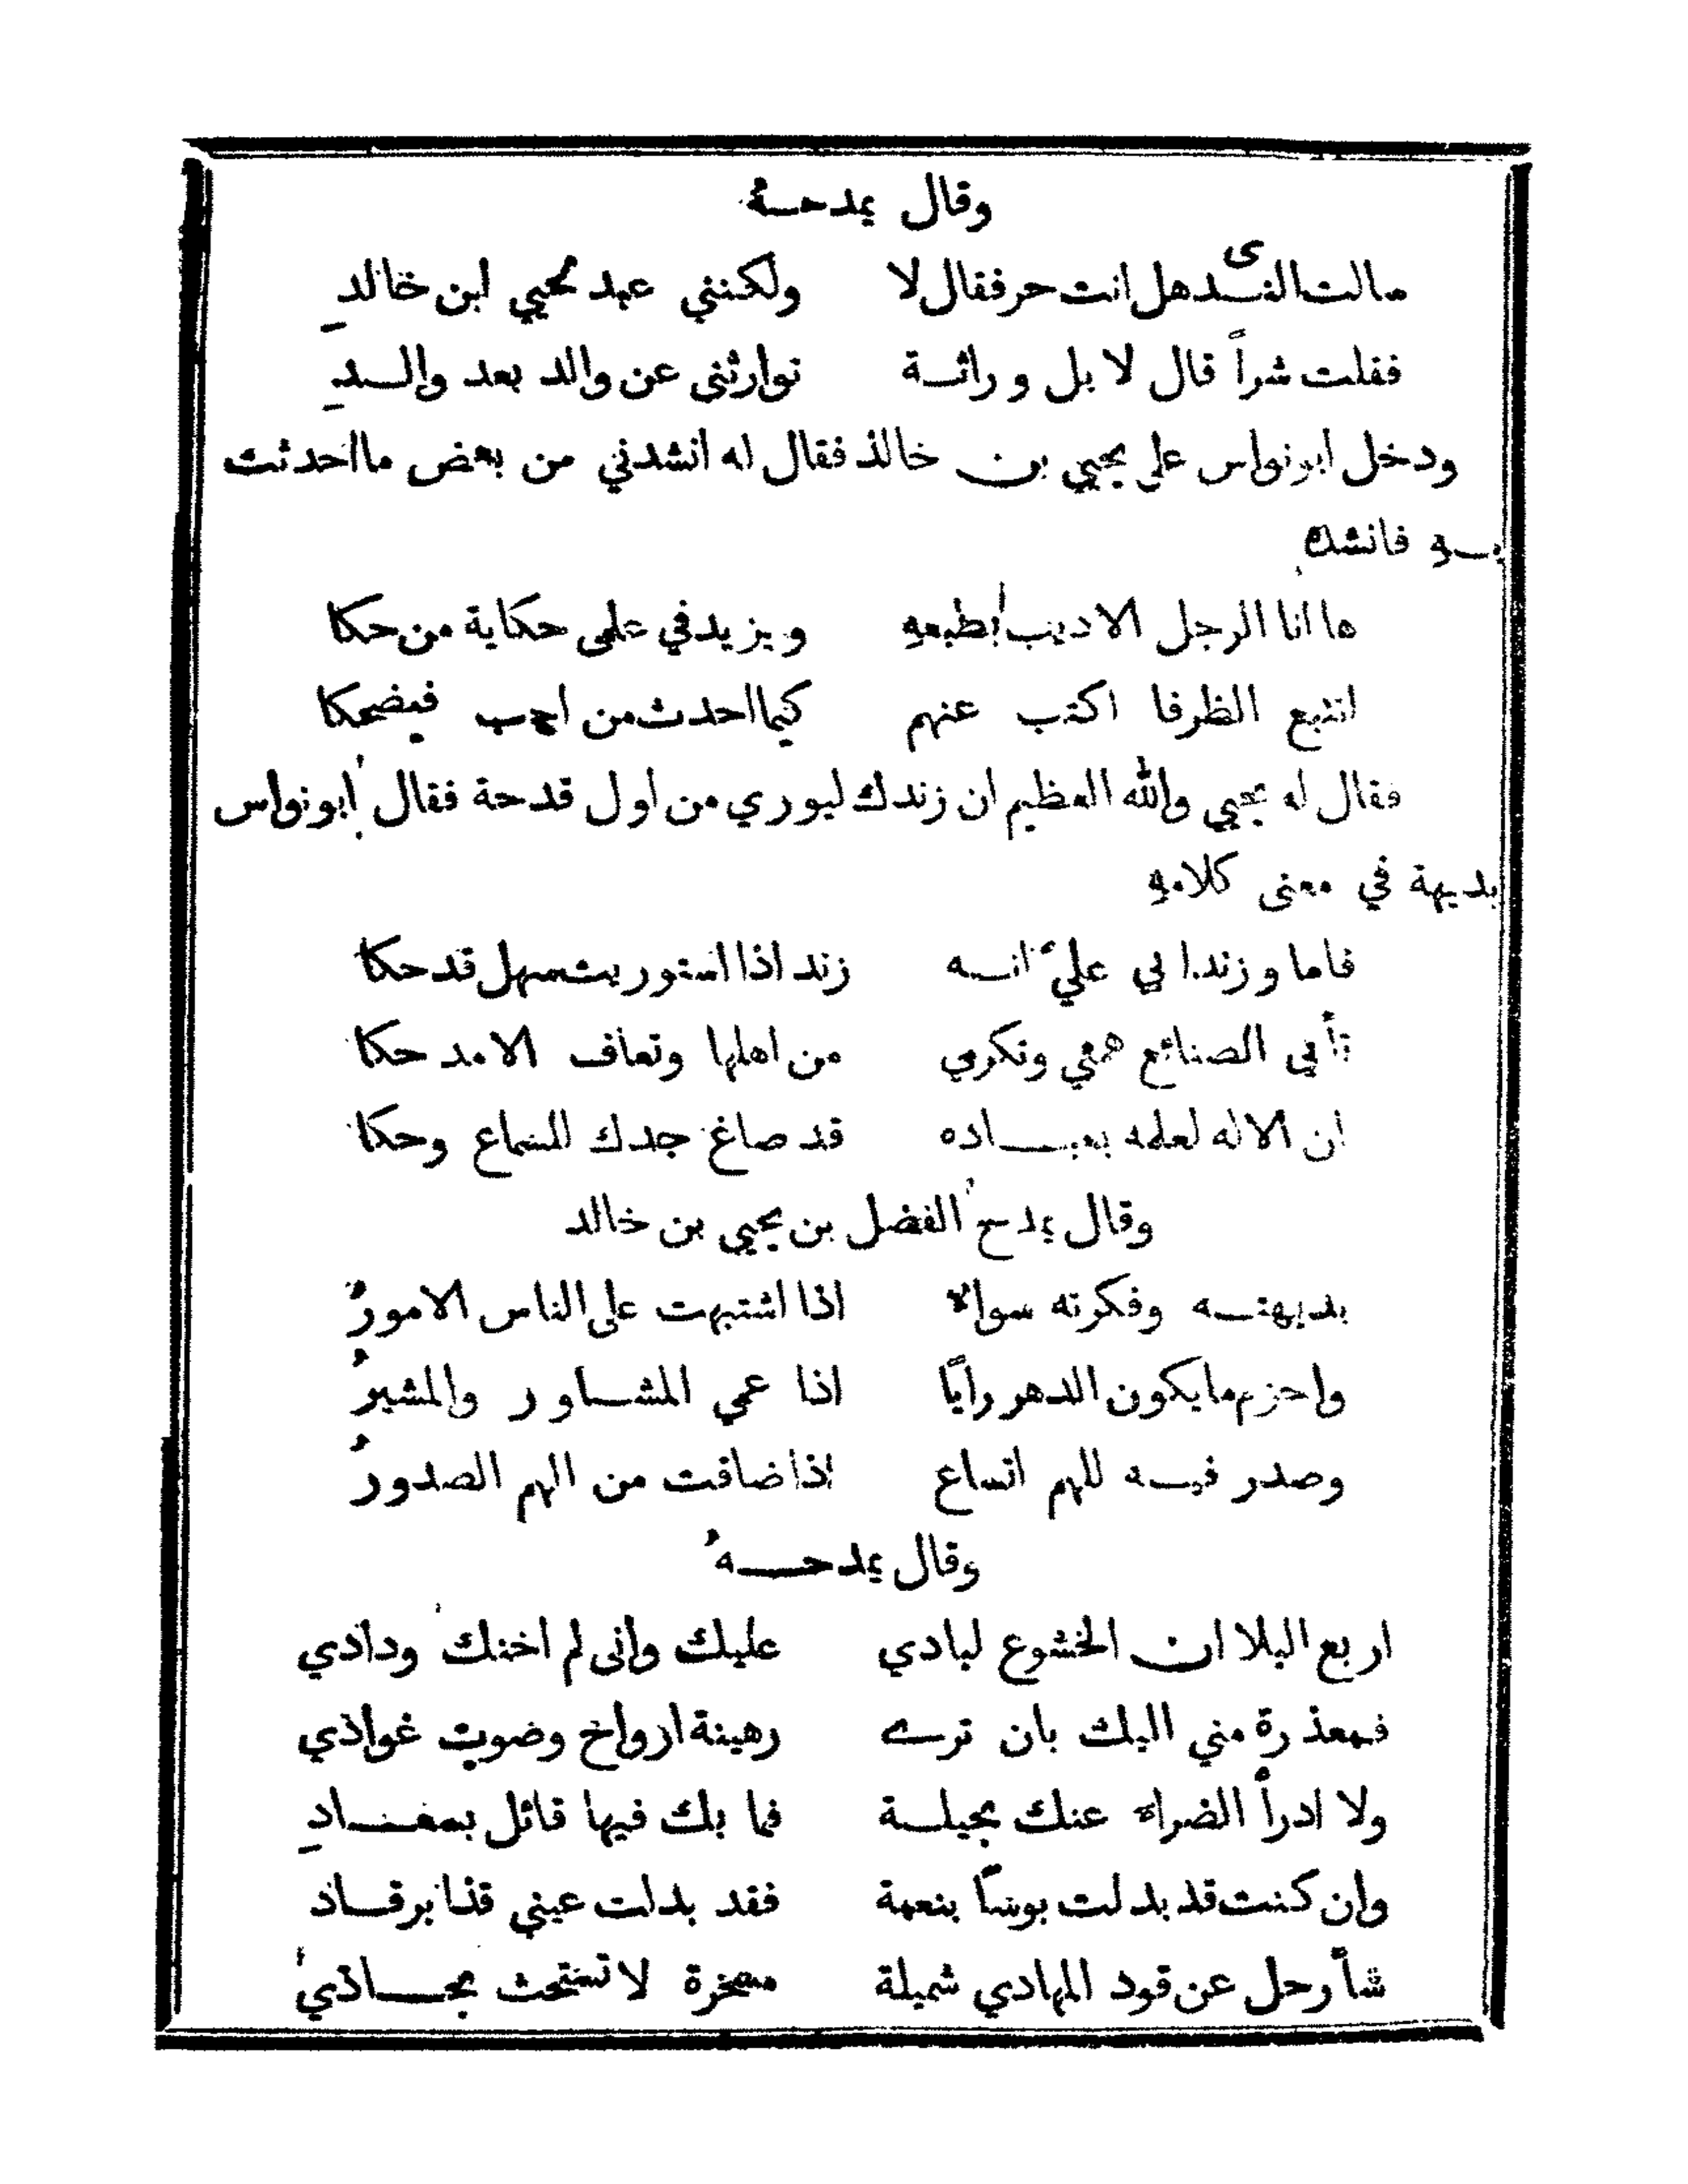 وقال يمدحهُ
سالت الندى هل انت حر فقال لا ولكنني عبد ليحيي ابن خالدِ
فقلت شراً قال لا بل وراثة توارثنى عن والد بعد والدِ
ودخل ابو نواس على يحيي بن خالد فقال له انشدني من بعض ما احدثت
به فانشده
ها انا الرجل الاديب بطبعهِ ويزيد في علمى حكاية من حكا
اتتبع الظرفا اكتب عنهم كيما احدث من احب فيضحكا
فقال له يحيي والله العظيم ان زندك ليوري من اول قدحة فقال ابو نواس
بديهة في معنى كلامهِ
فاما وزند ابي عليّ انه زند اذا استوريت سهل قدحكا
تأبي الصنائع همتي وتكرمي من اهلها وتعاف الا مدحكا
ان الاله لعلمه بعباده قد صاغ جدك للسماع وحكا
وقال يمدح الفضل بن يحيي بن خالد
بديهته وفكرته سواء اذا اشتبهت على الناس الامورُ
واحزم ما يكون الدهر رايًا اذا عمي المشاور والمشيرُ
وصدر فيه للهم اتساع اذا ضاقت من الهم الصدورُ
وقال يمدحهُ
اربع البلا ان الخشوع لبادي عليك وانى لم اخنك ودادي
فمعذرة مني اليك بان ترى رهينة ارواح وصوب غوادي
ولا ادرأ الضراء عنك بحيلة فما بك فيها قائل بسعادِ
وان كنت قد بدلت بوسًا بنعمة فقد بدلت عيني قذا برقاد
سأرحل عن قود المهادي شميلة مسخرة لا تستحث بحادي